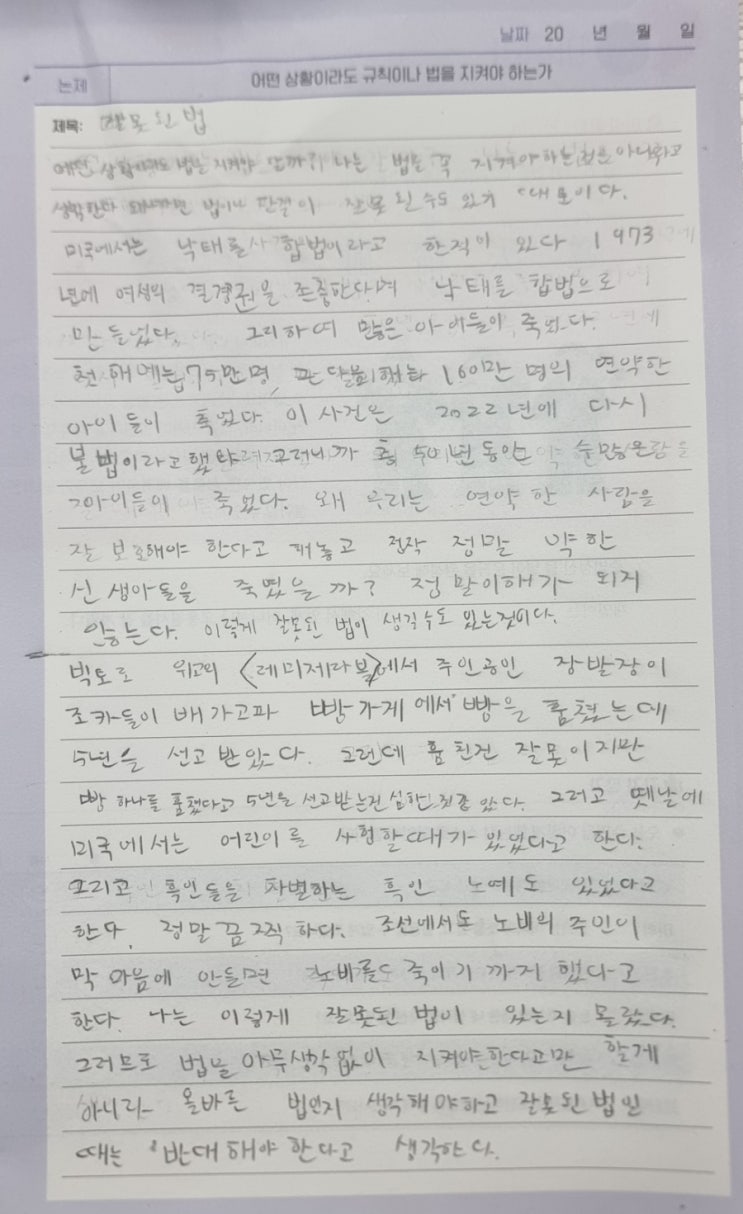 날짜 20 년 월 일
논제 어떤 상황이라도 규칙이나 법을 지켜야 하는가
제목: 잘못된 법
어떤 상황이라도 법을 지켜야 할까? 나는 법을 꼭 지켜야하는 것은 아니라고
생각한다 왜냐하면 법이나 판결이 잘못 될 수도 있기 때문이다.
미국에서는 낙태를 합법이라고 한적이 있다 1973
년에 여성의 결정권을 존중한다며 낙태를 합법으로
만들었다. 그리하여 많은 아이들이 죽었다.
첫 해에는 75만명, 160만 명의 연약한
아이들이 죽었다. 이 사건은 2022년에 다시
불법이라고 했 그러니까 총 50년 동안
아이들이 죽었다. 왜 우리는 연약한 사람을
잘 보호해야 한다고 해놓고 정작 정말 약한
신생아들을 죽였을까? 정말이해가 되지
않는다. 이렇게 잘못된 법이 생길수도 있는것이다.
빅토르 위고의 〈레미제라블〉에서 주인공인 장발장이
조카들이 배가고파 빵가게에서 빵을 훔쳤는데
5년을 선고 받았다. 그런데 훔친건 잘못이지만
빵 하나를 훔쳤다고 5년을 선고받는건 심한 것 같다. 그리고 옛날에
미국에서는 어린이를 사형할때가 있었다고 한다.
그리고 흑인들을 차별하는 흑인 노예도 있었다고
한다. 정말 끔찍하다. 조선에서도 노비의 주인이
막 마음에 안들면 노비를 죽이기 까지 했다고
한다. 나는 이렇게 잘못된 법이 있는지 몰랐다.
그러므로 법을 아무생각없이 지켜야한다고만 할게
아니라 올바른 법인지 생각해야하고 잘못된 법일
때는 반대해야 한다고 생각한다.